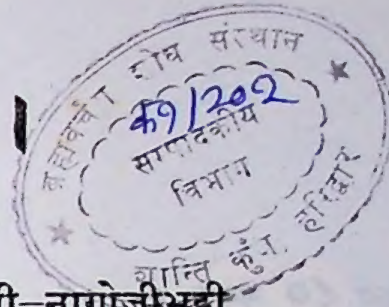 ब्रह्मवर्चस शोध संस्थान
क9/202
सम्पादकीय
विभाग
शान्ति कुंज, हरिद्वार
नागोजीभट्टी